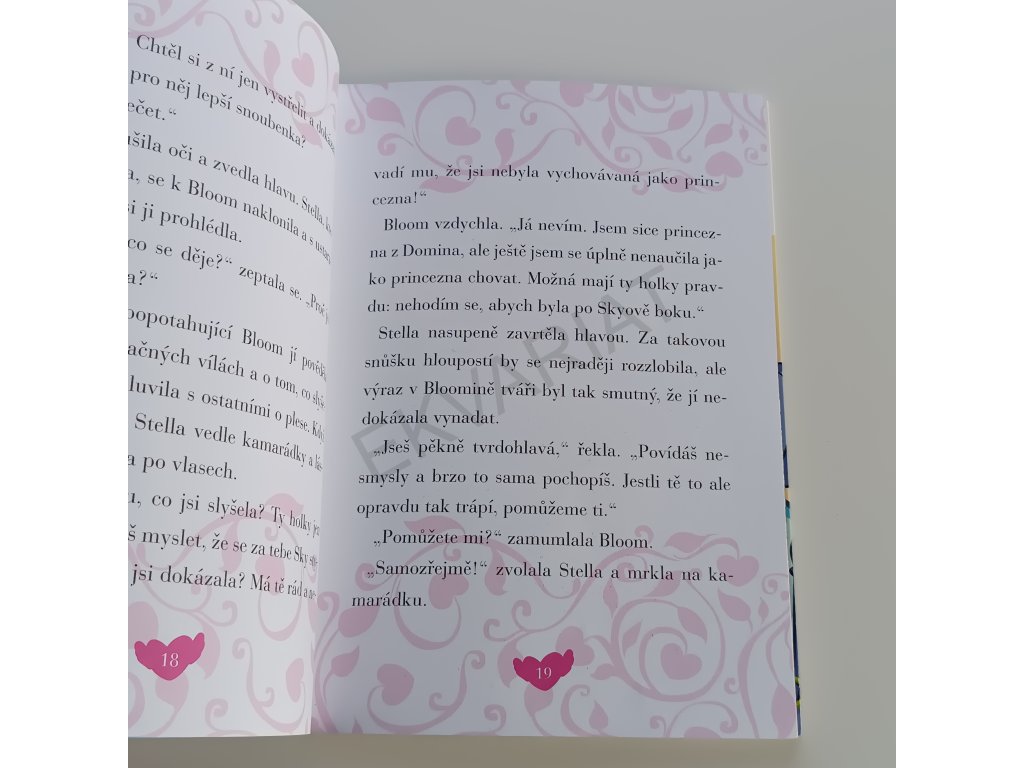 Chtěl si z ní jen vystřelit a dokázat
pro něj lepší snoubenka?
ečet.“
ušila oči a zvedla hlavu. Stella,
a, se k Bloom naklonila a s
si ji prohlédla.
co se děje?“ zeptala se. „Proč
a?“
popotahující Bloom jí
ačných vílách a o tom, co
luvila s ostatními o plese. Když
Stella vedle kamarádky a
a po vlasech.
u, co jsi slyšela? Ty holky jen
š myslet, že se za tebe Sky
jsi dokázala? Má tě rád a ne-
18
vadí mu, že jsi nebyla vychovávaná jako prin-
cezna!“
Bloom vzdychla. „Já nevím. Jsem sice princez-
na z Domina, ale ještě jsem se úplně nenaučila ja-
ko princezna chovat. Možná mají ty holky prav-
du: nehodím se, abych byla po Skyově boku.“
Stella nasupeně zavrtěla hlavou. Za takovou
snůšku hloupostí by se nejraději rozzlobila, ale
výraz v Bloomině tváři byl tak smutný, že jí ne-
dokázala vynadat.
„Jseš pěkně tvrdohlavá,“ řekla. „Povídáš ne-
smysly a brzo to sama pochopíš. Jestli tě to ale
opravdu tak trápí, pomůžeme ti.“
„Pomůžete mi?“ zamumlala Bloom.
„Samozřejmě!“ zvolala Stella a mrkla na ka-
marádku.
19
EKVARIAT